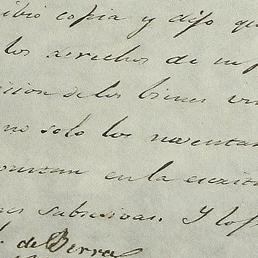 ibio copia y dijo que
los derechos de
icion de los bienes
no solo los inventa
en la escrit
subsivas. Y lo f
de Berra